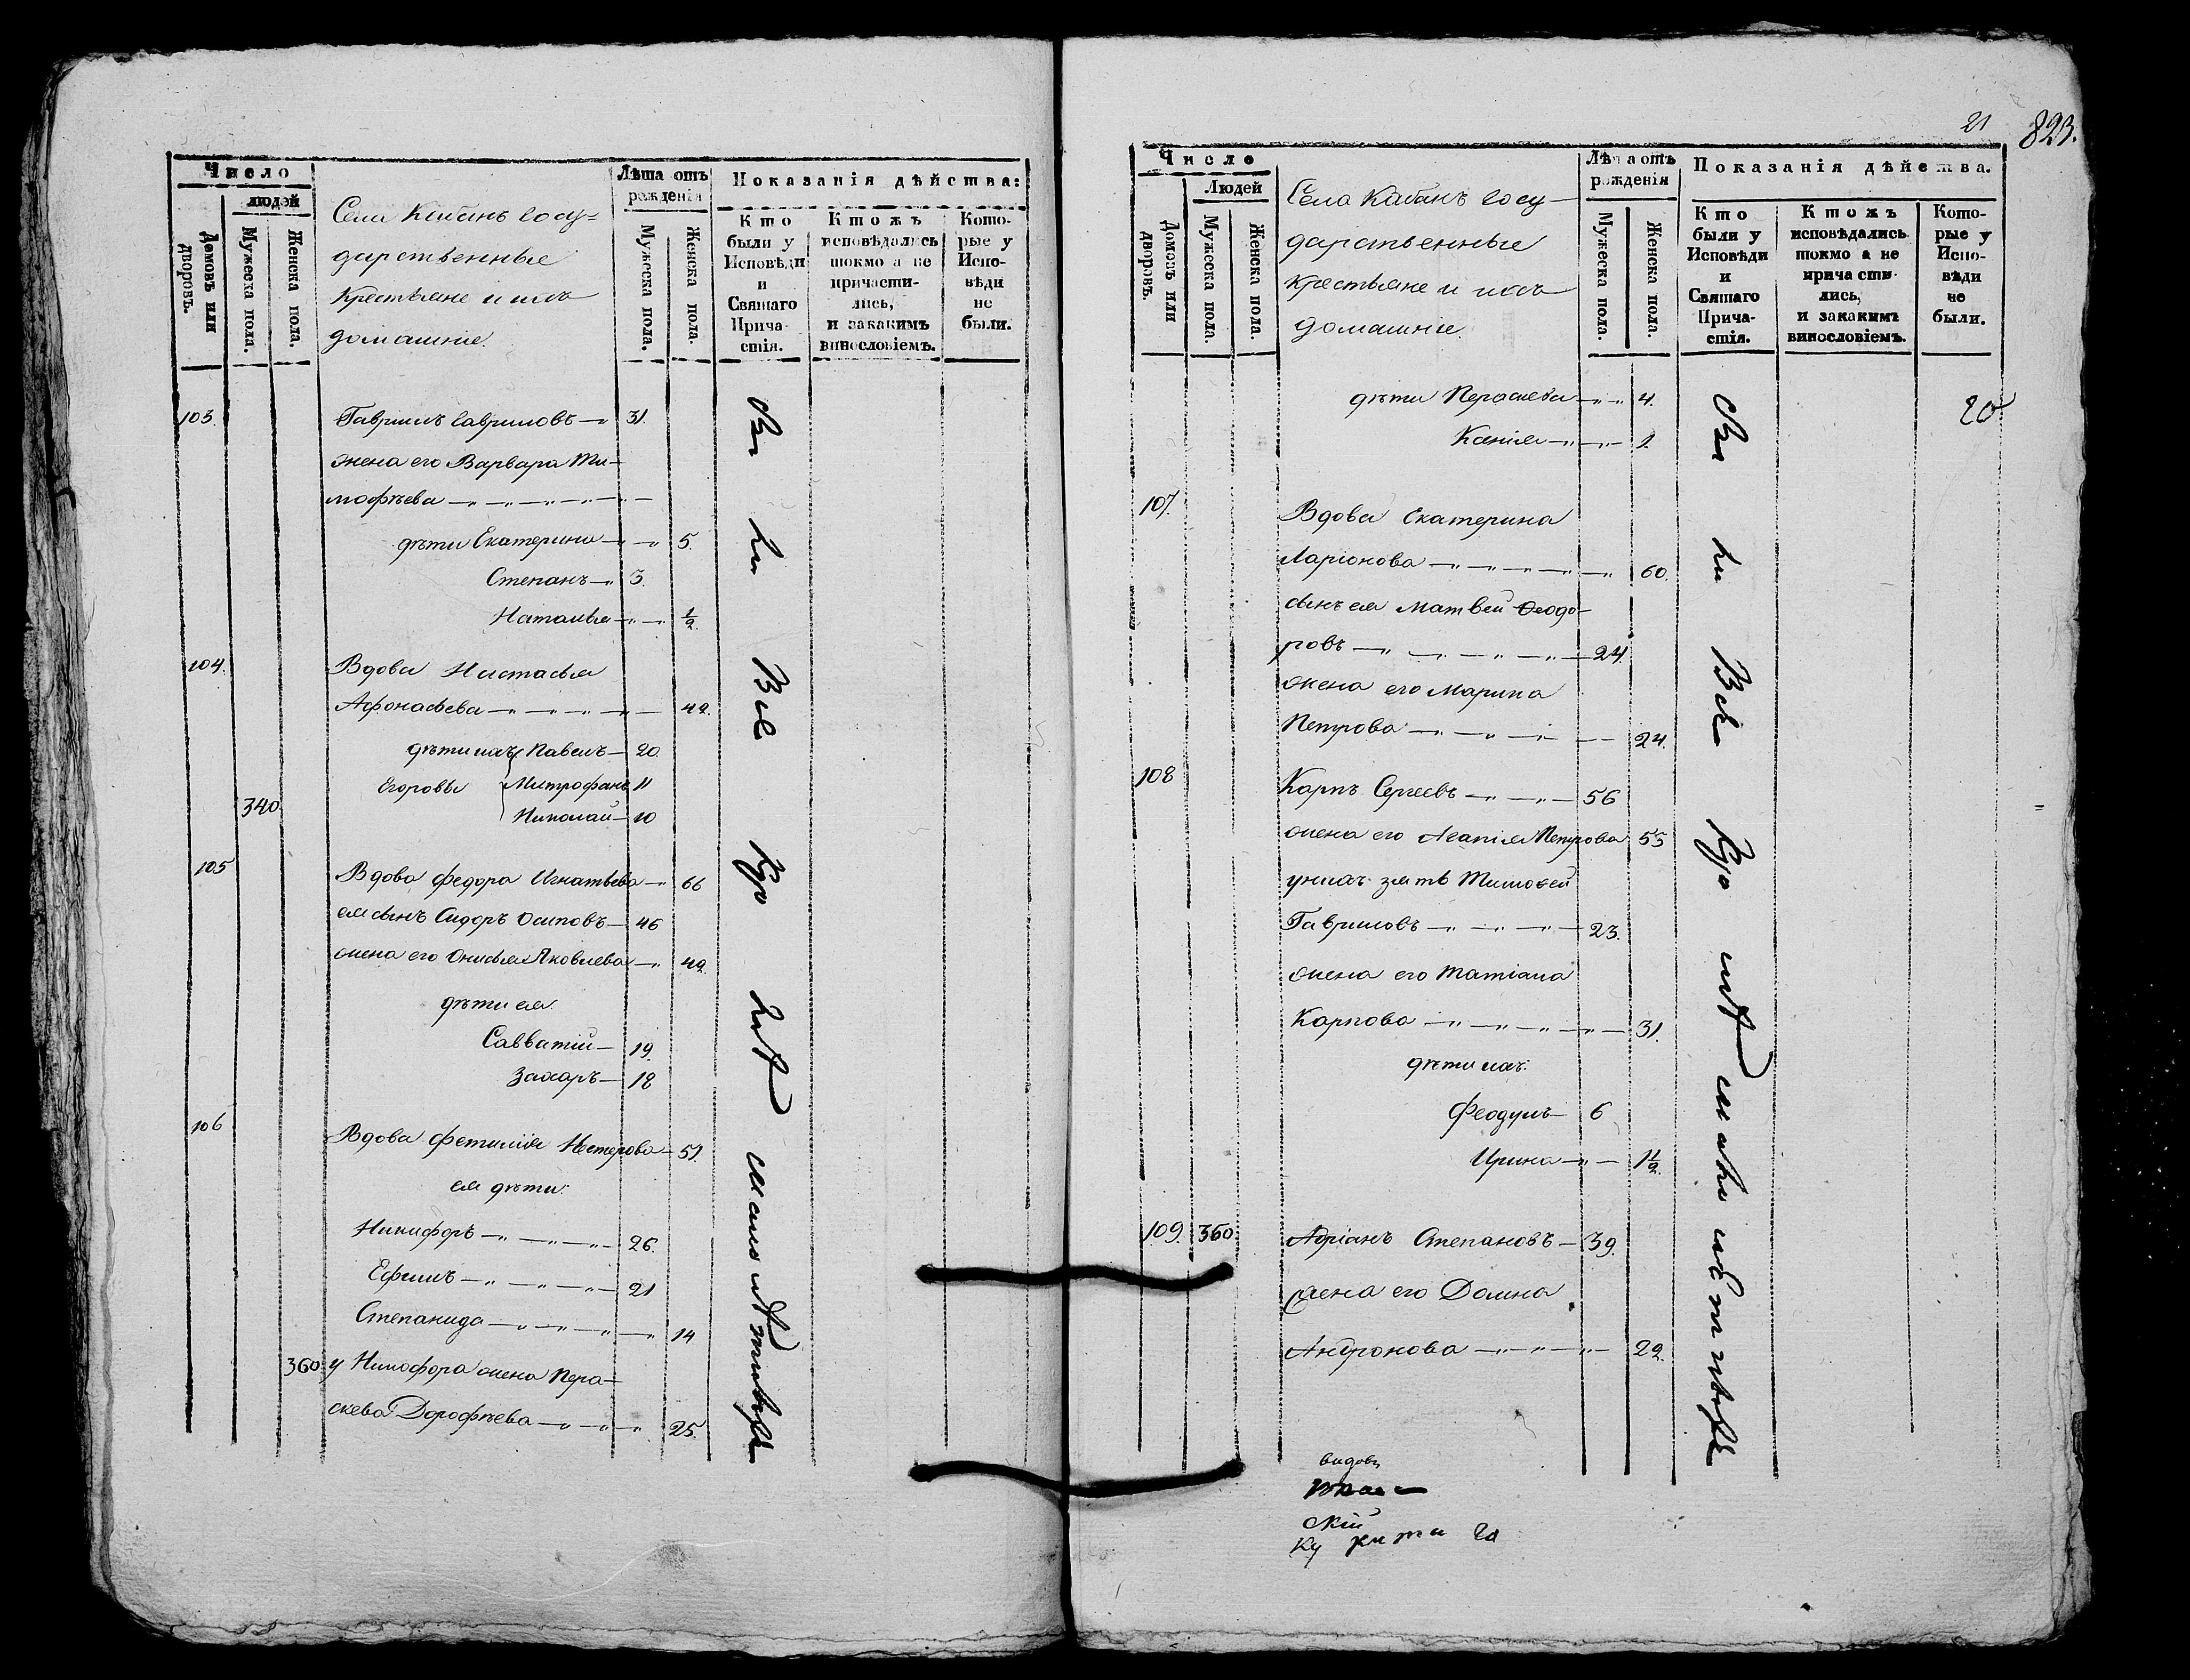 Число
людей
Домовъ или дворовъ.
Мужеска пола.
Женска пола.
Села Кабанъ Госу-
дарственные
Крестьяне и ихъ
домашніе.
Лѣта отъ
рожденія
Мужеска пола.
Женска пола.
Показанія дѣйства:
Кто
были у
Исповѣди
и
Святаго
Прича-
стія.
Ктожъ
исповѣдались
токмо а не
причасти-
лись,
и закакимъ
винословіемъ.
Кото-
рые у
Испо-
вѣди
не
были.
103. Гавриилъ Гавриловъ 31.
жена его Варвара Ти-
мофѣева
дѣти Екатерина 5.
Степанъ 3.
Наталья 1/2.
104. Вдова Настасья
Афонасьева 42.
дѣти ихъ Павелъ 20
Егоровы Митрофанъ 11
340 Николай 10
105 Вдова Федора Игнатьева 66
ея сынъ Сидоръ Осиповъ 46
жена его Онисья Яковлева 42
дѣти ея
Савватій 19.
Захаръ 18
106 Вдова Фетинія Нестерова 51.
ея дѣти:
Никифоръ 26.
Ефимъ 21
Степанида 14
360 у Никифора жена Пера-
скева Дорофѣева 25.
21 823.
Число
Людей
Домовъ или дворовъ.
Мужеска пола.
Женска пола.
Села Кабанъ Госу-
дарственные
Крестьяне и ихъ
домашніе.
Лѣта отъ
рожденія
Мужеска пола.
Женска пола.
Показанія дѣйства.
Кто
были у
Исповѣди
и
Святаго
Прича-
стія.
Ктожъ
исповѣдались
токмо а не
причасти-
лись,
и закакимъ
винословіемъ.
Кото-
рые у
Испо-
вѣди
не
были.
дѣти Пераскева 4. 20
Ксенія 1
107. Вдова Екатерина
Ларіонова 60.
сынъ ея Матвей Ѳеодо-
ровъ 24.
жена его Марина
Петрова 24.
108 Карпъ Сергеевъ 56
жена его Агапія Петрова 55
у нихъ зять Тимоѳей
Гавриловъ 23.
жена его Татіана
Карпова 31.
дѣти ихъ:
Феодулъ 6
Ирина 1 1/2.
109. 350. Адріанъ Степановъ 39.
жена его Домна
Андронова 22.